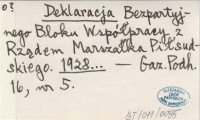 o?
Deklaracja Bezpartyj-
nego Bloku Współpracy z
Rządem Marszałka Piłsud-
skiego. 1928... — Gaz. Podh.
16, nr 5.